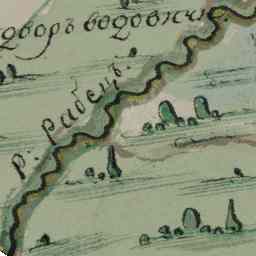 дворъ водовичи
р. рабецъ.